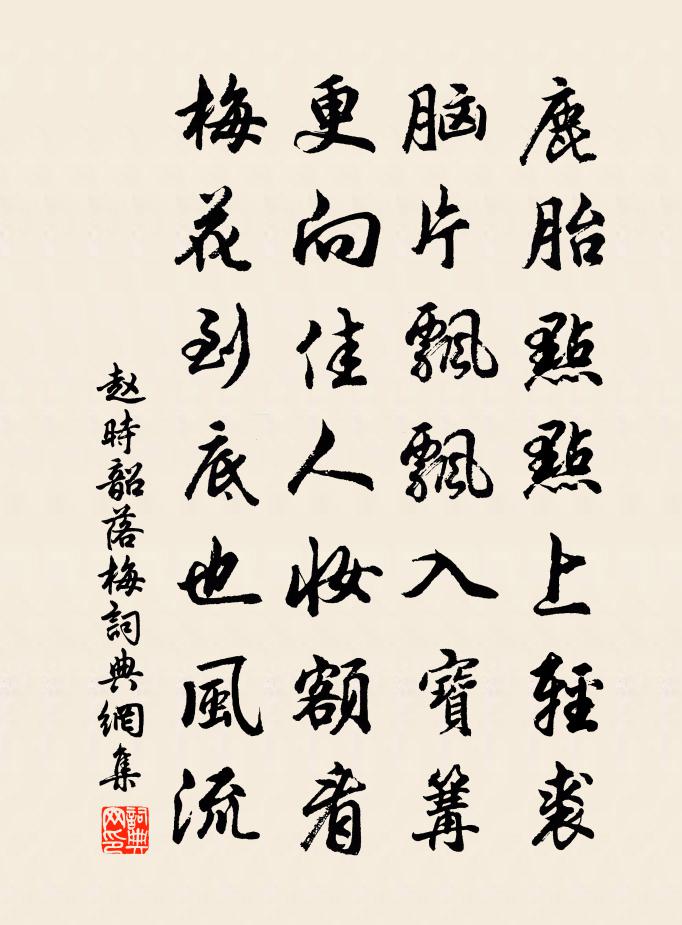 鹿胎點點上輕裘
脑片飄飄入寶篝
更向佳人妝額看
梅花到底也風流
赵時韶落梅詞典網集
詞典网印